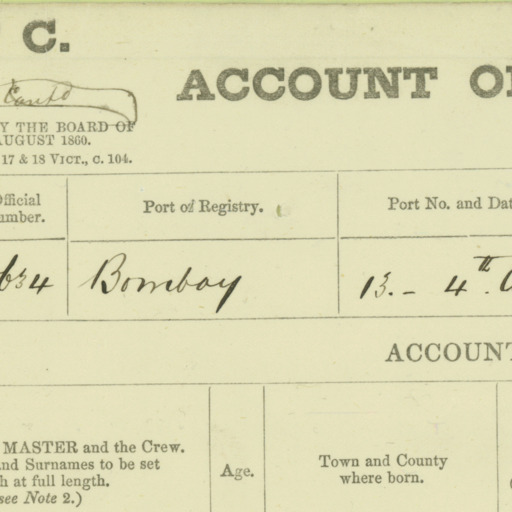 C.
ACCOUNT O
Y THE BOARD OF
AUGUST 1860.
17 & 18 VICT., C. 104.
Official
umber.
Port of Registry.
Port No. and Dat
634
Bombay
13.- 4th.
ACCOUNT
MASTER and the Crew.
nd Surnames to be set
h at full length.
see Note 2.)
Age.
Town and County
where born.